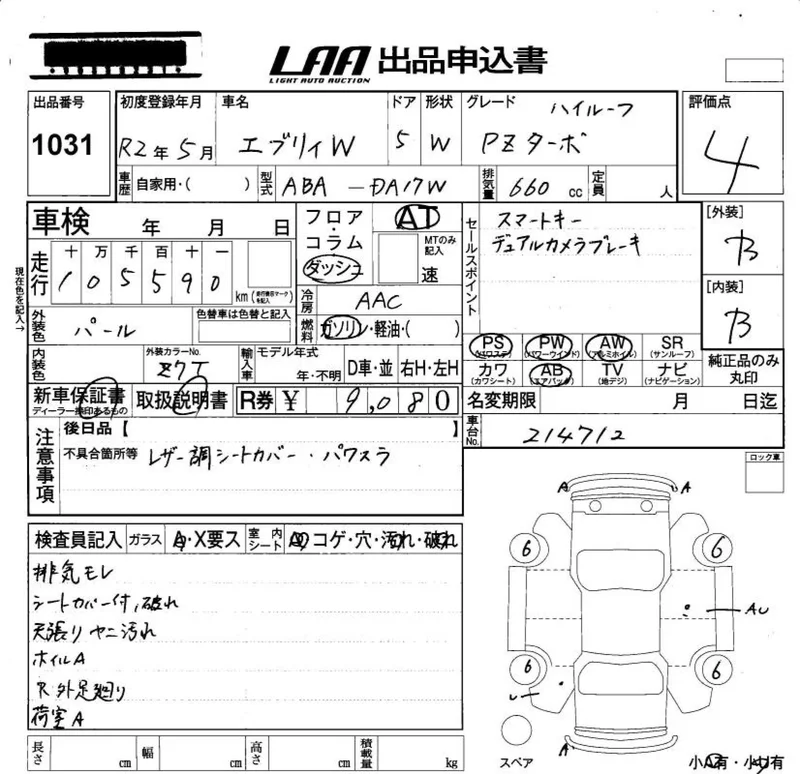 LAA 出品申込書
LIGHT AUTO AUCTION
出品番号
1031
初度登録年月
R2年5月
車名
エブリィW
ドア
5
形状
W
グレード
ハイルーフ
PZターボ
評価点
4
車歴 自家用・( )
型式 ABA-DA17W
排気量 660 cc
定員 人
車検 年 月 日
走行
十 万 千 百 十 一
1 0 5 5 9 0
km (走行積算マークを記入)
現在色を記入→
フロア・コラム
ダッシュ
AT
MTのみ記入
速
冷房 AAC
燃料 ガソリン・軽油・( )
セールスポイント
スマートキー
デュアルカメラブレーキ
[外装]
B
[内装]
B
外装色 パール
色替車は色替と記入
内装色
外装カラーNo.
Z7T
輸入車
モデル年式
年・不明
D車・並 右H・左H
PS (パワステ)
PW (パワーウインド)
AW (アルミホイル)
SR (サンルーフ)
カワ (カワシート)
AB (エアバック)
TV (地デジ)
ナビ (ナビゲーション)
純正品のみ丸印
新車保証書
ディーラー捺印あるもの
取扱説明書
R券 ¥ 9,080
名変期限 月 日迄
車台No. 214712
注意事項
後日品 [ ]
不具合箇所等 レザー調シートカバー・パワスラ
ロック車
検査員記入
ガラス A・X要ス
室内シート コゲ・穴・汚れ・破れ
排気モレ
シートカバー付、破れ
天張りヤニ汚れ
ホイルA
R外足廻り
荷室A
A A
6 6
AU
6 6
A
スペア
小A有・小U有
長さ cm 幅 cm 高さ cm 積載量 kg